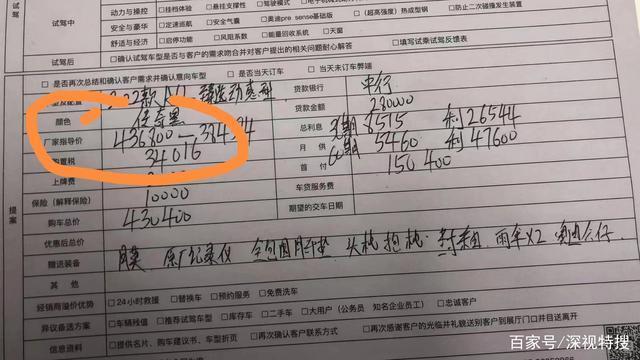 试驾
试驾中
动力与操控 □挂档体验 □悬挂支撑性 □驾驶模式
安全与豪华 □定速巡航 □安全气囊 □奥迪pre sense基础版 □（超高强度）热成型钢 □防止二次碰撞发生装置
舒适与经济 □启停功能 □风阻系数 □能量回收系统 □天窗
试驾后 □确认试驾车型是否与客户的需求吻合并对客户提出的相关问题耐心解答 □填写试乘试驾反馈表
□是否再次总结和确认客户需求并确认意向车型 □是否当天订车 □当天未订车弊端
动感型 贷款银行 中行
颜色 传奇黑 贷款金额 280000
厂家指导价 436800 — 384 总利息 8515 利26544
购置税 34016 月供 5460 利47600
上牌费 首付 150400
保险（解释保险） 10000 车贷服务费
购车总价 430400 期望的交车日期
优惠后总价
赠送装备 原厂记录仪 全包围脚垫 头枕 抱枕 雨伞X2
其他
提案
经销商溢价优势 □24小时救援 □替换车 □预约服务 □免费洗车
异议备选方案 □车辆残值 □推荐试驾车型 □库存车 □二手车 □大用户（公务员 知名企业员工） □忠诚客户
信息资料 □提供名片、购车建议书、车型折页 □再次确认客户联系方式 □再次感谢客户的光临并礼貌送别客户到展厅门口并目送离开
百家号/深视特搜